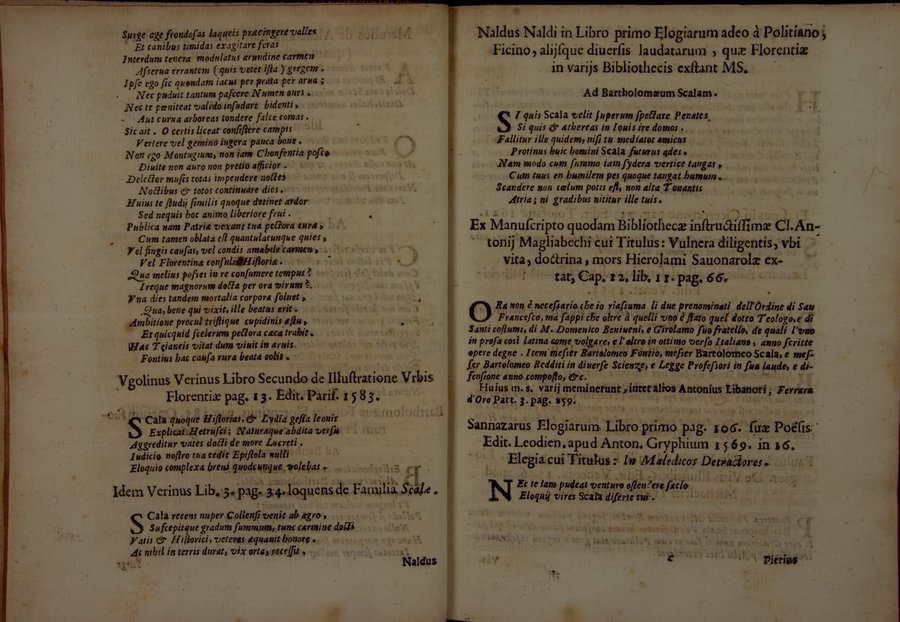 Surge age frondosas laqueis præcingere valles
Et canibus timidas exagitare feras
Interdum tenera modulatus arundine carmen
Asserua errantem (quis vetet ista) gregem.
Ipse ego sic quondam lacus per prata per arua;
Nec puduit tantum pascere Numen oues.
Nec te pœniteat valido insudare bidenti,
Aut curua arboreas tondere falce comas.
Sic ait. O certis liceat consistere campis
Vertere vel gemino iugera pauca boue.
Non ego Montugium, non iam Chonfentia posco
Diuite non auro non pretio afficior.
Delector musis totas impendere noctes
Noctibus & totos continuare dies.
Huius te studij similis quoque detinet ardor
Sed nequis hoc animo liberiore frui.
Publica nam Patriæ vexant tua pectora cura,
Cum tamen oblata est quantulacunque quies,
Vel fingis causas, vel condis amabile carmen,
Vel Florentina consulis Historiæ.
Qua melius posses in re consumere tempus?
Ireque magnorum docta per ora virum?
Vna dies tandem mortalia corpora soluet,
Qua, bene qui vixit, ille beatus erit.
Ambitione procul tristique cupidinis æstu,
Et quicquid scelerum pectora cæca trahit.
Hac Teianeis vitat dum viuit in aruis
Fontius hac causa rura beata colio.
Vgolinus Verinus Libro Secundo de Illustratione Vrbis
Florentiæ pag. 13. Edit. Paris. 1583.
SCala quoque Historias, & Lydia gesta leonis
Explicat Hetrusci; Naturæque abdita versu
Aggreditur vates docti de more Lucreti.
Iudicio nostro tua cedit Epistola nulli
Eloquio complexa breui quodcunque volebas.
Idem Verinus Lib. 3. pag. 34. loquens de Familia Scalæ.
SCala recens nuper Collensi venit ab agro,
Suscepitque gradum summum, tunc carmine docti
Vatis & Historici, veteres æquauit honore.
At nihil in terris durat, vix orta, recessit,
Naldus
Naldus Naldi in Libro primo Elogiarum adeo à Politiano,
Ficino, alijsque diuersis laudatarum, quæ Florentiæ
in varijs Bibliothecis exstant MS.
Ad Bartholomæum Scalam.
SI quis Scala velit superum spectare Penates
Si quis & æthereas in Iouis ire domos.
Fallitur ille quidem, nisi tu mediator amicus
Protinus huic homini Scala futurus ades.
Nam modo cum summo iam sydera vertice tangas,
Cum tuus en humilem pes quoque tangat humum.
Scandere non cœlum potis est, non alta Tonantis
Atria; ni gradibus nititur ille tuis.
Ex Manuscripto quodam Bibliothecæ instructissimæ Cl. An-
tonij Magliabechi cui Titulus: Vulnera diligentis, vbi
vita, doctrina, mors Hierolami Sauonarolæ ex-
tat, Cap. 12. lib. 11. pag. 66.
ORa non è necessario che io riassuma li due prenominati dell'Ordine di San
Francesco, ma sappi che oltre à quelli vno è stato quel dotto Teologo, e di
Santi costumi, di M. Domenico Beniueni, e Girolamo suo fratello, de quali l'vno
in prosa così latina come volgare, e l'altro in ottimo verso Italiano, anno scritte
opere degne. Item messer Bartolomeo Fontio, messer Bartolomeo Scala, e mes-
ser Bartolomeo Redditi in diuerse Scienze, e Legge Professori in sua laude, e di-
fensione anno composto, &c.
Huius m. s. varij meminerunt, inter alios Antonius Libanori; Ferrara
d'Oro Part. 3. pag. 259.
Sannazarus Elogiarum Libro primo pag. 106. suæ Poësis
Edit. Leodien. apud Anton. Gryphium 1569. in 16.
Elegia cui Titulus: In Maledicos Detractores.
NEc te iam pudeat venturo ostendere sæclo
Eloquij vires Scala diserte tui.
c
Pierius